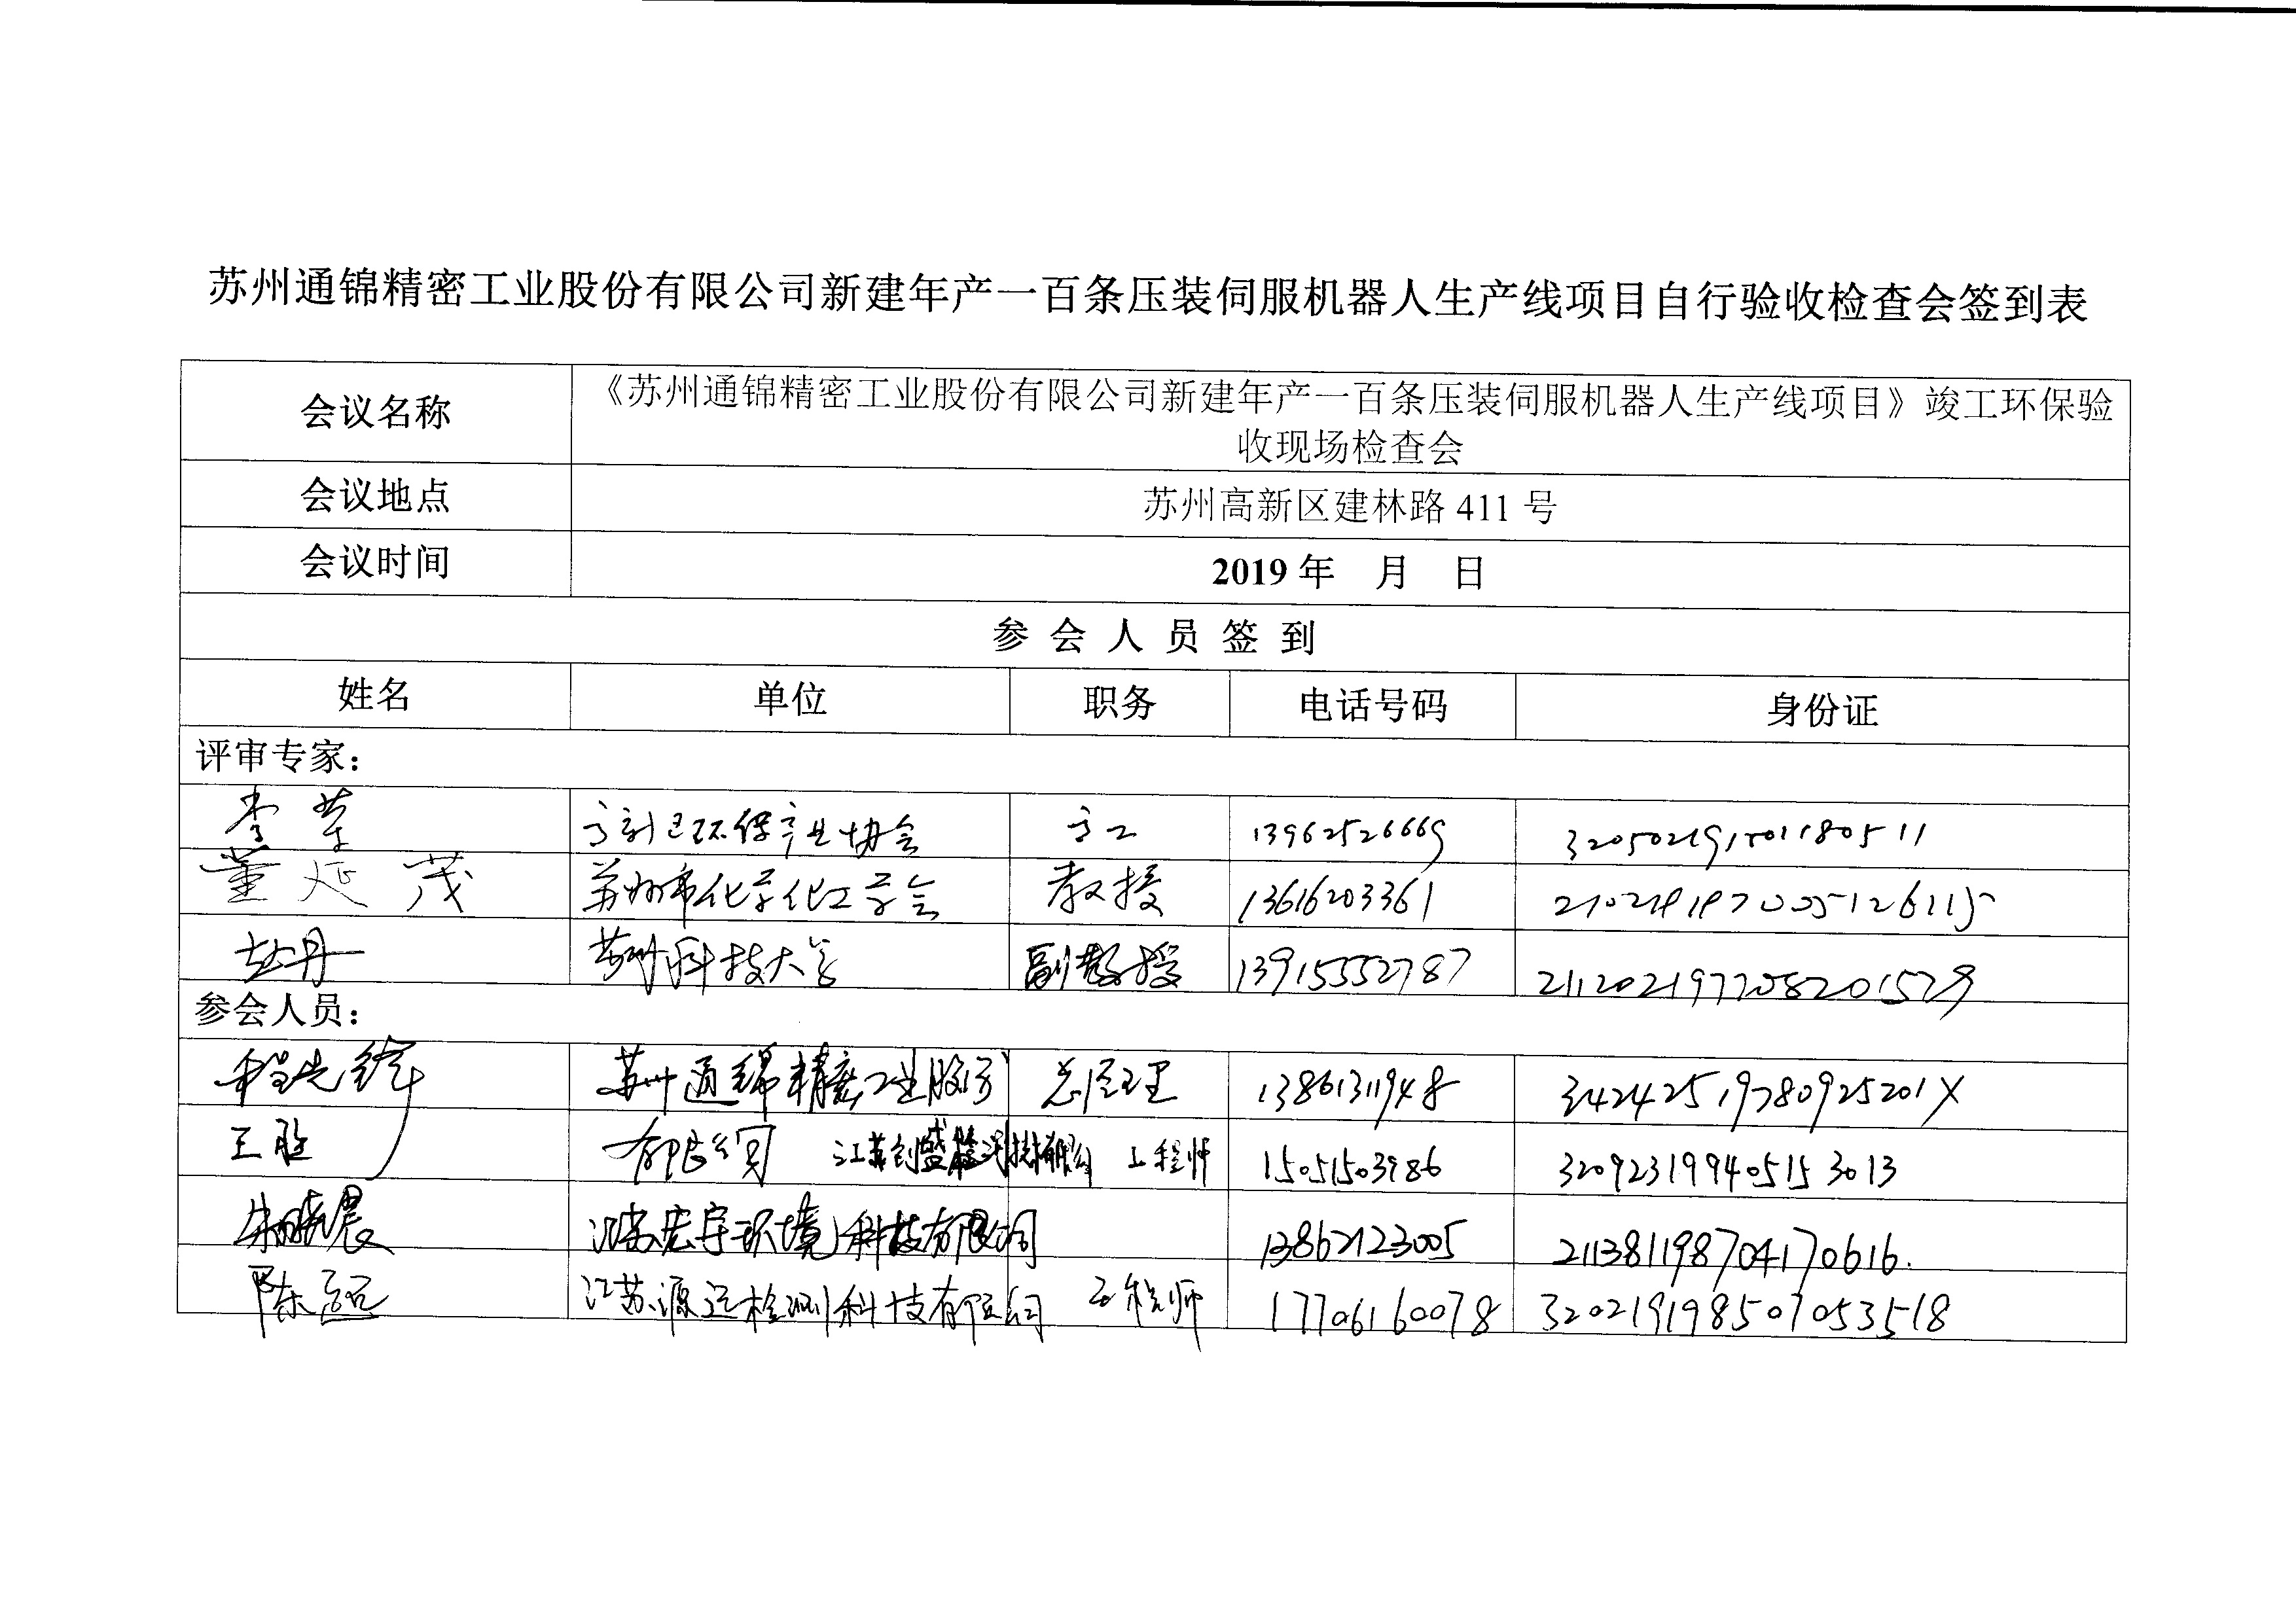 苏州通锦精密工业股份有限公司新建年产一百条压装伺服机器人生产线项目自行验收检查会签到表
会议名称 《苏州通锦精密工业股份有限公司新建年产一百条压装伺服机器人生产线项目》竣工环保验
收现场检查会
会议地点 苏州高新区建林路 411 号
会议时间 2019 年 月 日
参 会 人 员 签 到
姓名 单位 职务 电话号码 身份证
评审专家：
李 环保产业协会 高工 13962526669
董延茂 苏州市化学化工学会 教授 13616203361
杜丹 苏州科技大学 副教授 13915552787 211202197708201579
参会人员：
程先锋 苏州通锦精密工业股份 总经理 13861311948 34242519780925201X
王胜 有限公司 江苏创盛检测技术有限公司 工程师 15051503986 320923199405153013
朱晓晨 江苏宏宇环境科技有限公司 13862123005 211381198704170616.
陈远 江苏源远检测科技有限公司 工程师 17706160078 320219198507053518